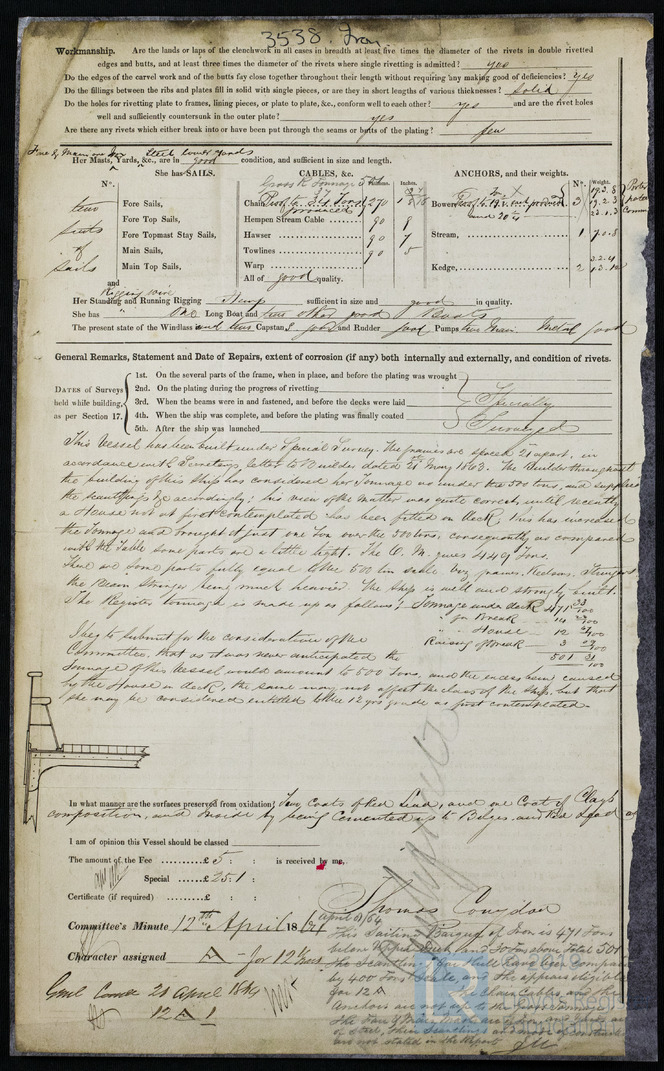 3538. Iron
Workmanship. Are the lands or laps of the clenchwork in all cases in breadth at least five times the diameter of the rivets in double rivetted
edges and butts, and at least three times the diameter of the rivets where single rivetting is admitted? yes
Do the edges of the carvel work and of the butts fay close together throughout their length without requiring any making good of deficiencies? yes
Do the fillings between the ribs and plates fill in solid with single pieces, or are they in short lengths of various thicknesses? solid
Do the holes for rivetting plate to frames, lining pieces, or plate to plate, &c., conform well to each other? yes and are the rivet holes
well and sufficiently countersunk in the outer plate? yes
Are there any rivets which either break into or have been put through the seams or butts of the plating? few
Fore & Main Iron Steel lower yards
Her Masts, Yards, &c., are in good condition, and sufficient in size and length.
She has SAILS. CABLES, &c. ANCHORS, and their weights.
Nº. Fathoms. Inches. Nº. Weight.
two suits of sails and
Fore Sails,
Fore Top Sails,
Fore Topmast Stay Sails,
Main Sails,
Main Top Sails,
Chain 270
Hempen Stream Cable 90 8
Hawser 90 7
Towlines 90 5
Warp
All of good quality.
Bowers, 3
Stream, 1 7.0.8
Kedge, 2
Rigging wire
Her Standing and Running Rigging Hemp sufficient in size and good in quality.
She has " One Long Boat and two other good Boats
The present state of the Windlass and two Capstans good and Rudder good Pumps two Main Metal good
General Remarks, Statement and Date of Repairs, extent of corrosion (if any) both internally and externally, and condition of rivets.
DATES of Surveys held while building, as per Section 17.
1st. On the several parts of the frame, when in place, and before the plating was wrought
2nd. On the plating during the progress of rivetting
3rd. When the beams were in and fastened, and before the decks were laid
4th. When the ship was complete, and before the plating was finally coated
5th. After the ship was launched
Specially
Surveyed
This Vessel has been built under Special Survey. The frames are spaced 21 apart, in
accordance with Secretarys letter to Builder dated 28 May 1863. The Builder throughout
the building of this ship has considered her Tonnage as under the 500 tons, and supplied
the scantlings &c accordingly; his view of the matter was quite correct, until recently
a House not at first contemplated has been fitted on deck, this has increased
the Tonnage and brought it just one Ton over the 500 tons, consequently as compared
with the Table some parts are a little light. The O. M. gives 449 Tons.
There are some parts fully equal to the 500 ton table viz frames, Keelsons, Stringers
the Beam Stringer being much heavier. The ship is well and strongly built.
The Register tonnage is made up as follows: Tonnage under deck 471
" for Break 14
" House 12
Raising of Break 3
501
I beg to submit for the consideration of the
Committee, that as it was never anticipated the
Tonnage of this Vessel would amount to 500 tons, and the excess been caused
by the House on deck, the same may not affect the class of the ship, but that
she may be considered entitled to the 12 yrs grade as first contemplated.
In what manner are the surfaces preserved from oxidation? Two Coats of Red Lead, and one Coat of Clays
composition, and Inside by being Cemented up to Bilges, and Red Lead
I am of opinion this Vessel should be classed
The amount of the Fee £ 5 : : is received by me,
Special £ 25.1 :
Certificate (if required) £ : :
Thomas Congdon
Committee's Minute 12th April 1864
Character assigned A for 12 Years
Genl Comee 21 April 1864
12 A 1
April 9/64
This Sailing Barque of Iron is 471 Tons
below Upper Deck and 30 Tons above Total 501
the Scantlings
by 400 Tons Scale, and she appears eligible
for 12 A
Anchors are not up to the
of steel, their scantlings and mode of construction
are not stated in the Report
Lloyd's Register
Foundation